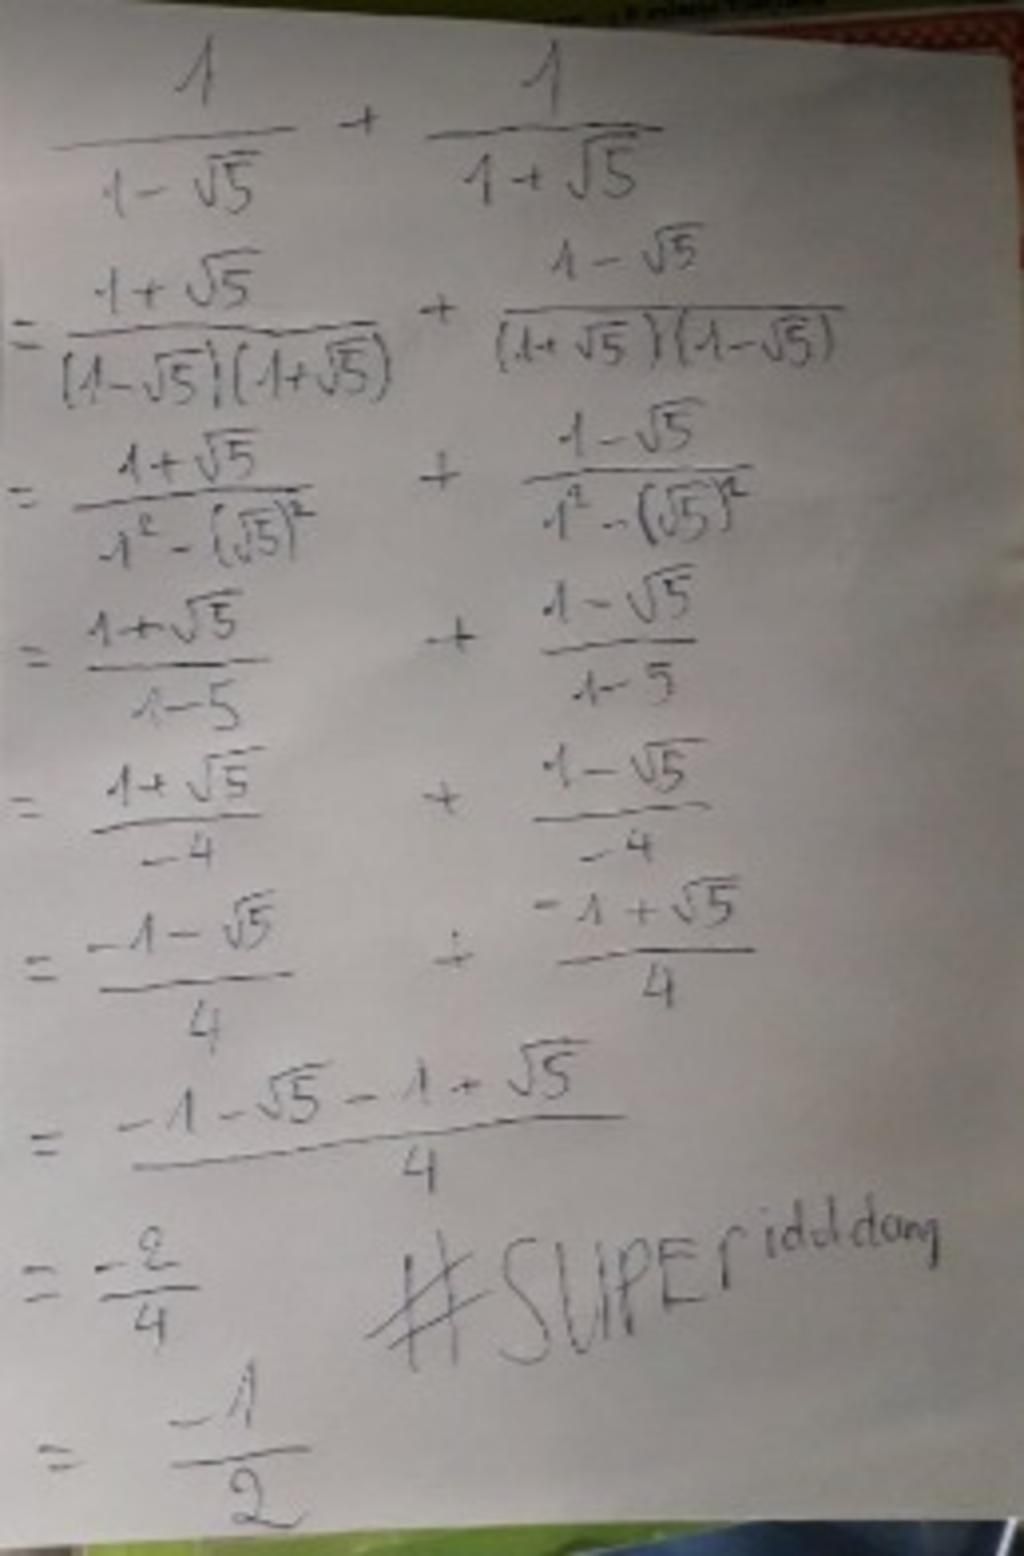 1/(1-√5) + 1/(1+√5)
= (1+√5)/((1-√5)(1+√5)) + (1-√5)/((1+√5)(1-√5))
= (1+√5)/(1²-(√5)²) + (1-√5)/(1²-(√5)²)
= (1+√5)/(1-5) + (1-√5)/(1-5)
= (1+√5)/(-4) + (1-√5)/(-4)
= (-1-√5)/4 + (-1+√5)/4
= (-1-√5-1+√5)/4
= -2/4
#SUPER
= -1/2